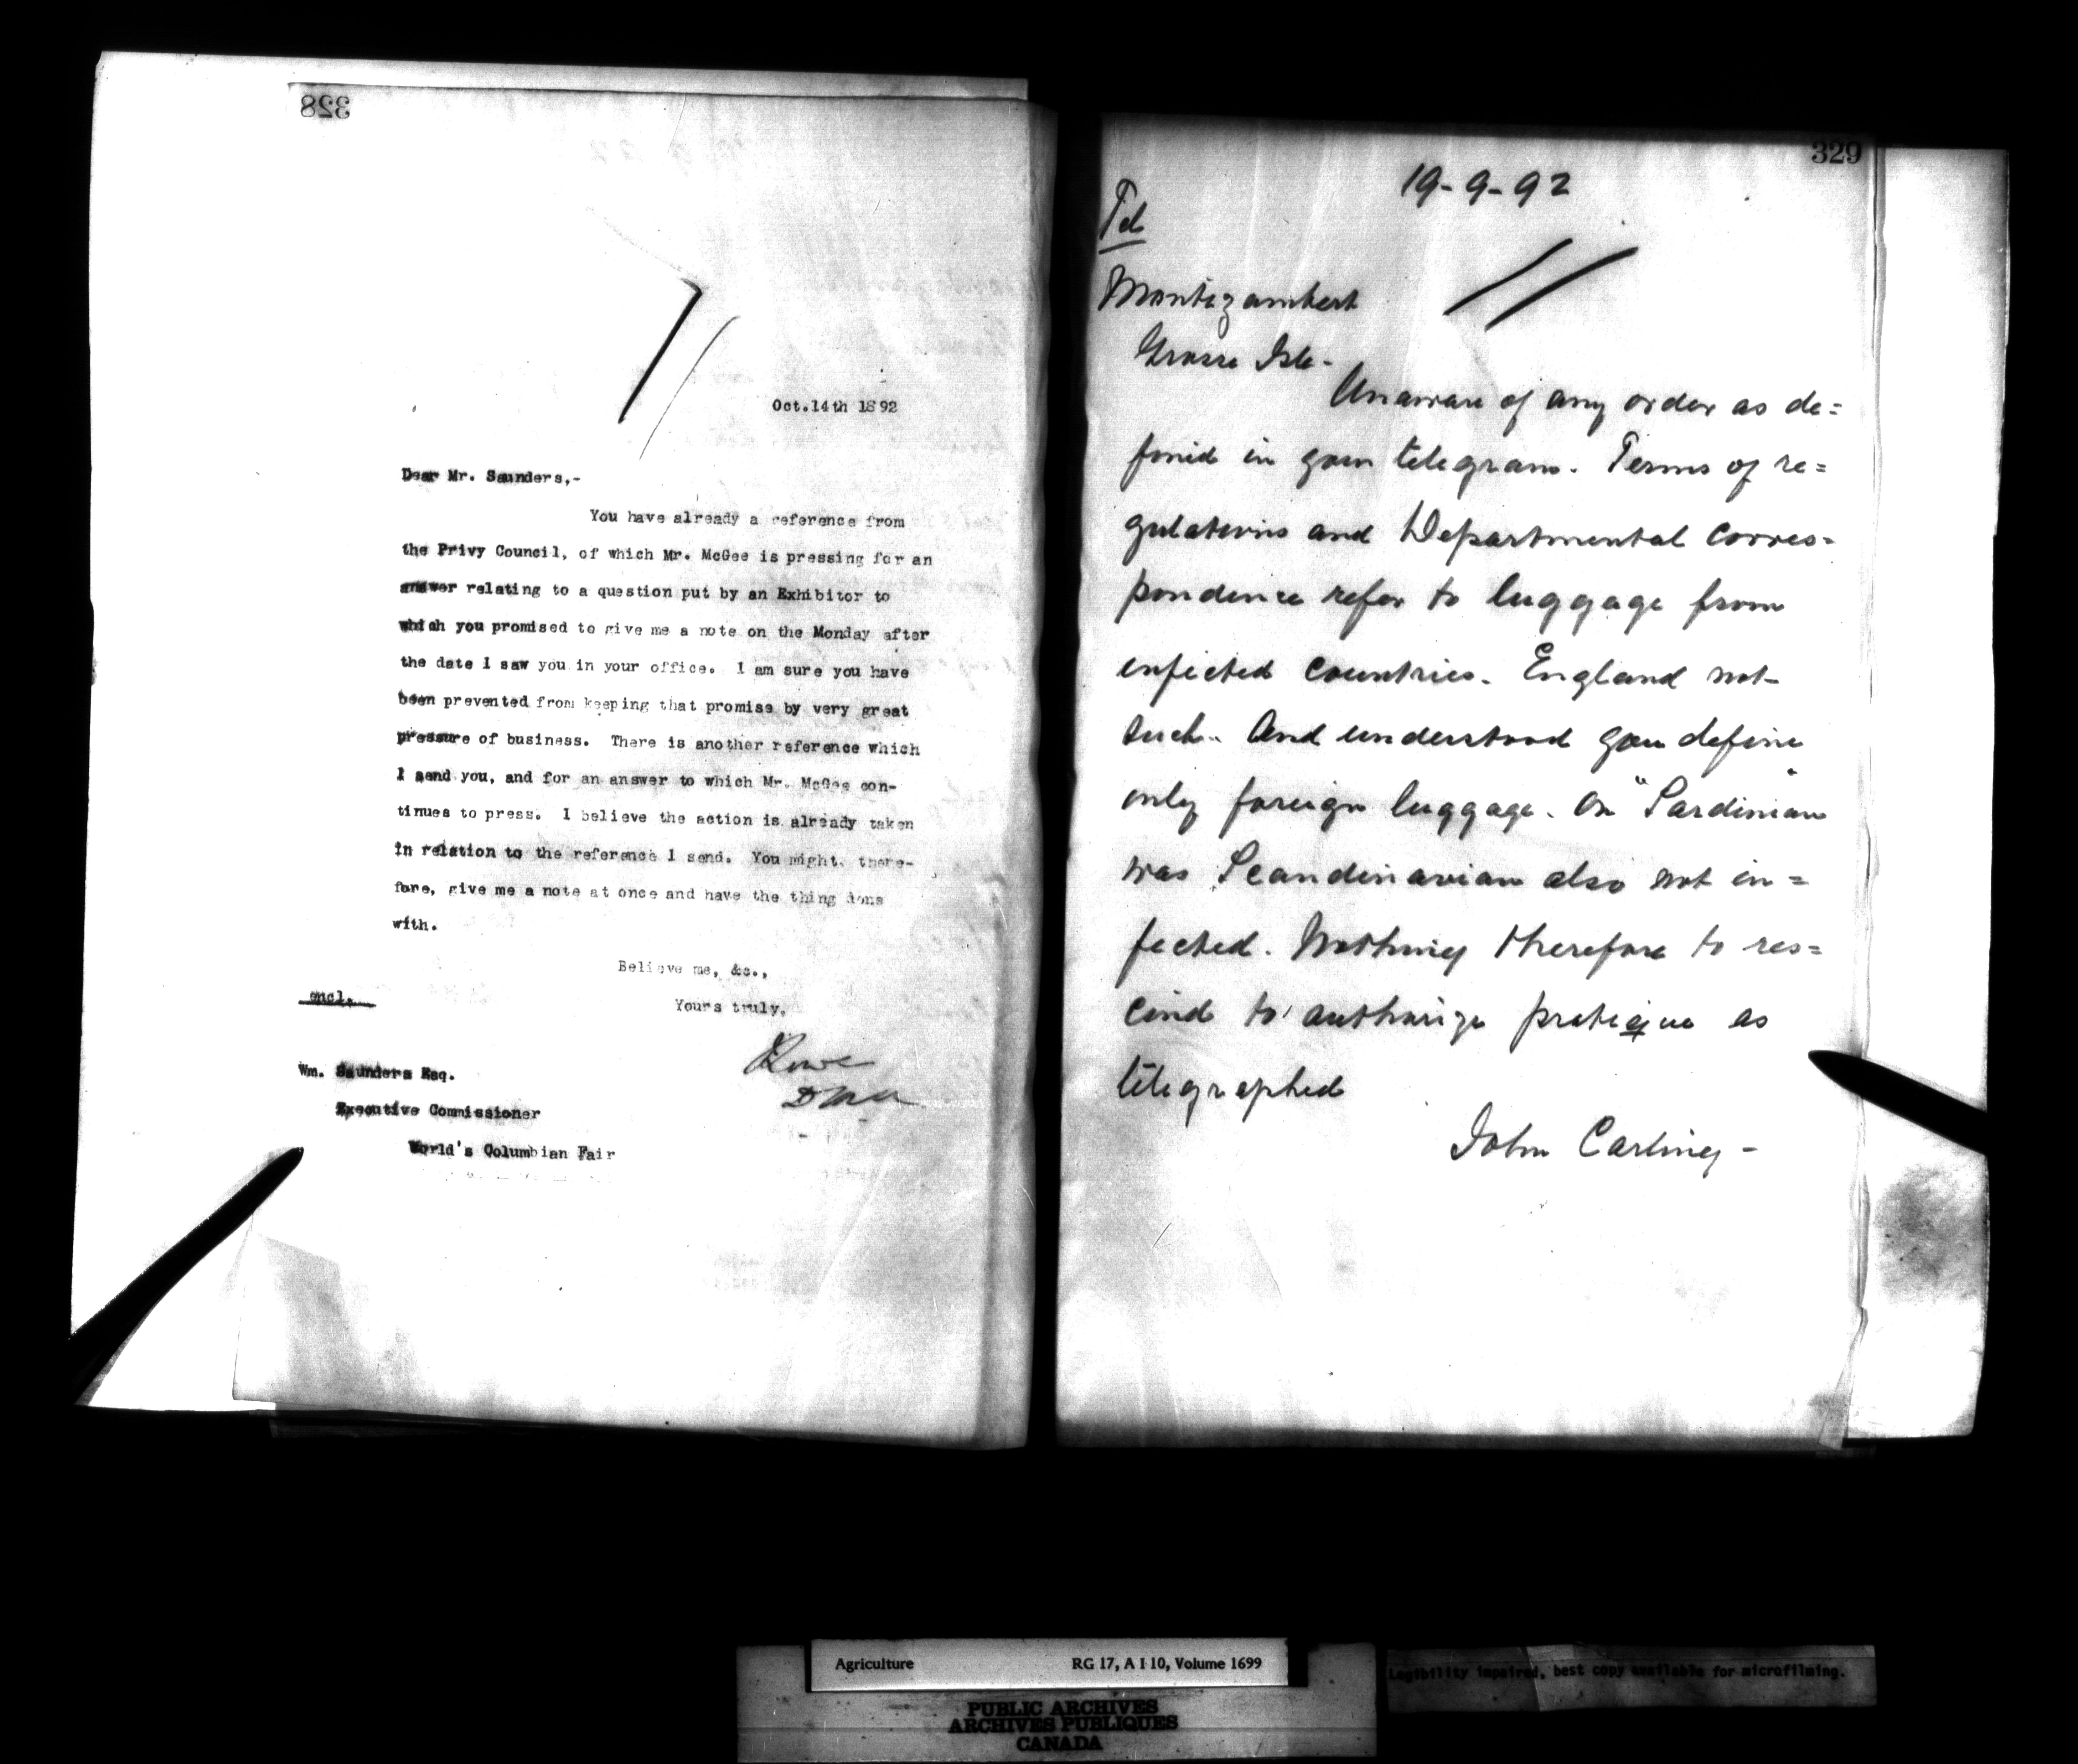 328
Oct.14th 1892
Dear Mr. Saunders,-
You have already a reference from
the Privy Council, of which Mr. McGee is pressing for an
answer relating to a question put by an Exhibitor to
which you promised to give me a note on the Monday after
the date I saw you in your office. I am sure you have
been prevented from keeping that promise by very great
pressure of business. There is another reference which
I send you, and for an answer to which Mr. McGee con-
tinues to press. I believe the action is already taken
in relation to the reference I send. You might, there-
fore, give me a note at once and have the thing done
with.
Believe me, &c.,
Yours truly,
encl.
Wm. Saunders Esq.
Executive Commissioner
World's Columbian Fair
329
19-9-92
Tel
Montizambert
Grosse Isle-
Unaware of any order as de=
fined in your telegram. Terms of re=
gulations and Departmental corres=
pondence refer to luggage from
infected countries. England not
such. And understood you define
only foreign luggage. On "Sardinian"
was Scandinavian also not in=
fected. Nothing therefore to res=
cind to authorize pratique as
telegraphed
John Carling-
Agriculture RG 17, A I 10, Volume 1699
Legibility impaired, best copy available for microfilming.
PUBLIC ARCHIVES
ARCHIVES PUBLIQUES
CANADA